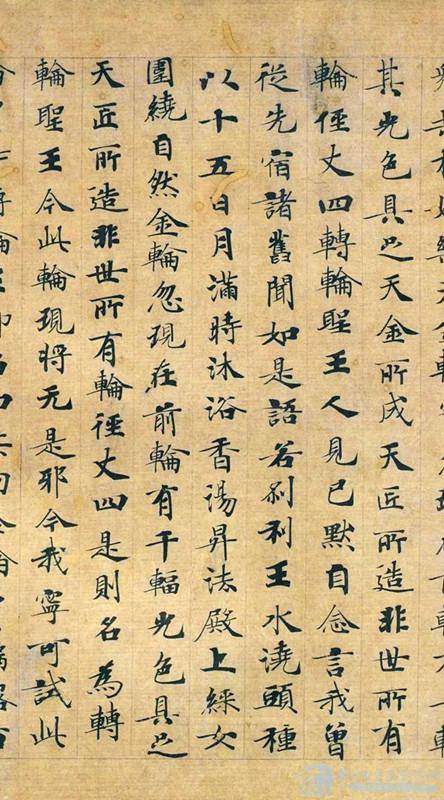 其光色具足天金所成天匠所造非世所有
輪俓丈四轉輪聖王人見已默自念言我曾
從先宿諸舊聞如是語若剎利王水澆頭種
以十五日月滿時沐浴香湯昇法殿上綵女
圍繞自然金輪忽現在前輪有千輻光色具足
天匠所造非世所有輪徑丈四是則名為轉
輪聖王今此輪現將无是邪今我寧可試此